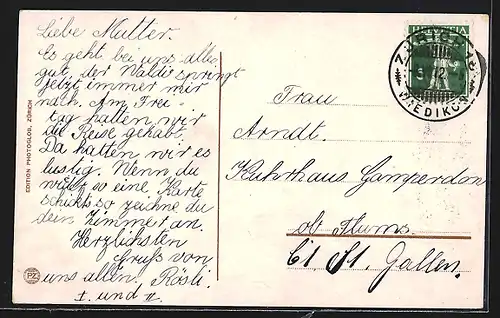 Liebe Mutter.
Es geht bei uns alles
gut, der Waldi springt
jetzt immer mir
nach. Am Frei-
tag hatten wir
die Reise gehabt.
Da hatten wir es
lustig. Wenn du
so eine Karte
schickst so zeichne du
dein Zimmer an.
Herzlichsten
Gruss von
uns allen. Rösli.
I. und II.
EDITION PHOTOGLOB, ZÜRICH
PZ
HELVETIA
ZÜRICH
WIEDIKON
Frau
Arndt.
Kuhrhaus Gamperdon
ob Flums.
Ct St. Gallen.